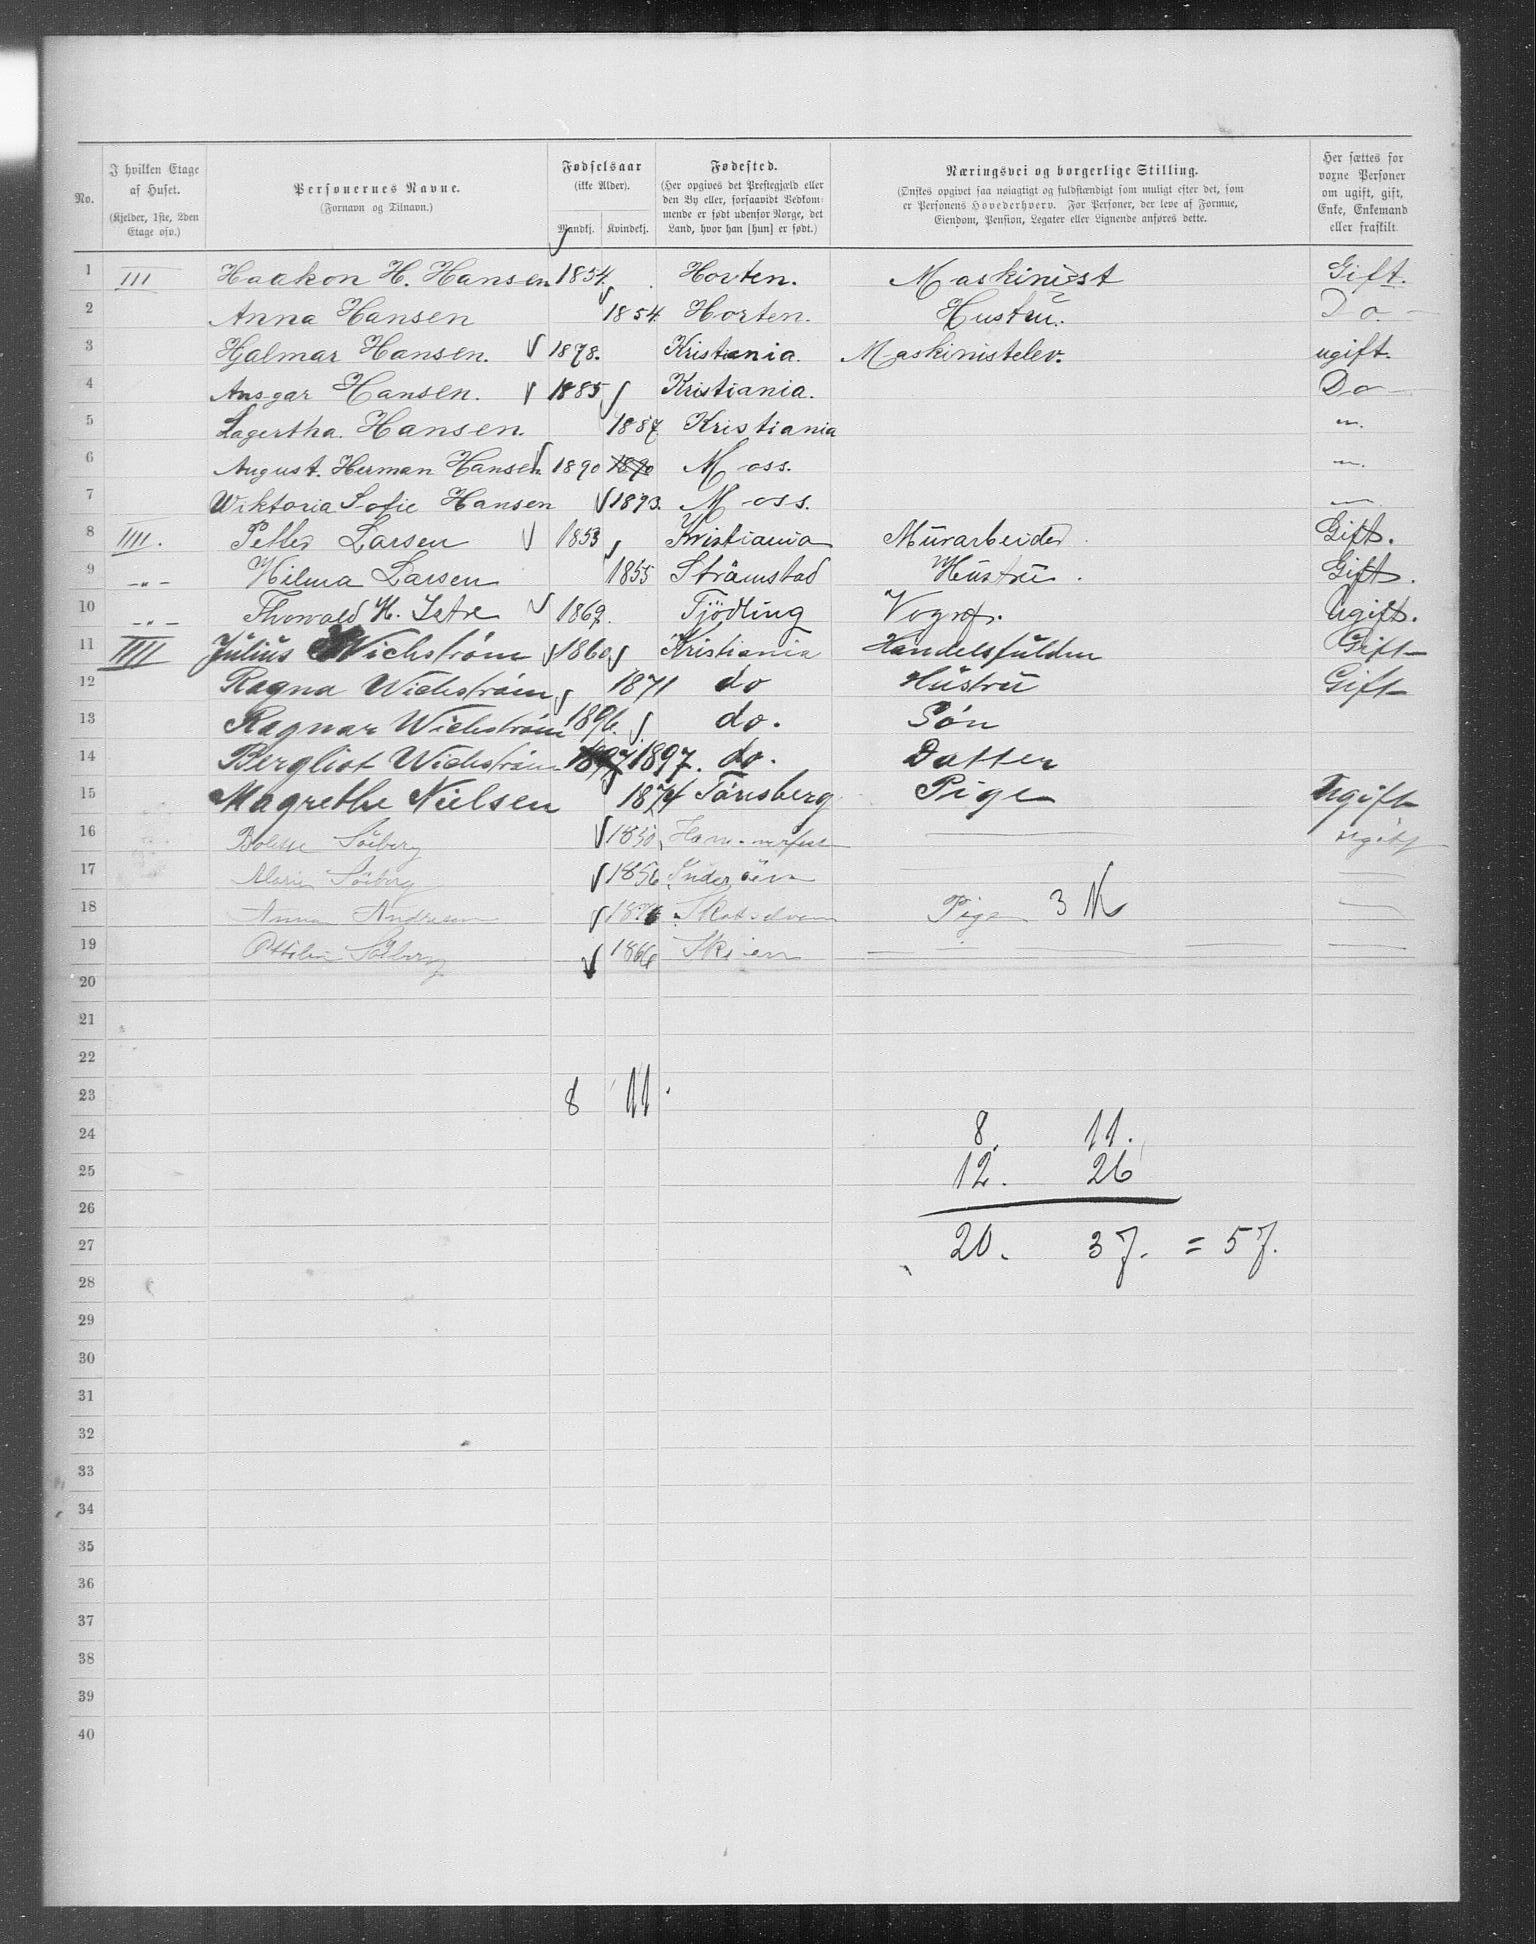 No.
I hvilken Etage af Huset.
(Kjelder, 1ste, 2den Etage osv.)
Personernes Navne.
(Fornavn og Tilnavn.)
Fødselsaar
(ikke Alder).
Mandkj. Kvindekj.
Fødested.
(Her opgives det Prestegjæld eller
den By eller, forsaavidt Vedkom-
mende er født udenfor Norge, det
Land, hvor han [hun] er født.)
Næringsvei og borgerlige Stilling.
(Ønskes opgivet saa nøiagtigt og fuldstændigt som muligt efter det, som
er Personens Hovederhverv. For Personer, der leve af Formue,
Eiendom, Pension, Legater eller Lignende anføres dette.)
Her sættes for
voxne Personer
om ugift, gift,
Enke, Enkemand
eller fraskilt.
1 III Haakon H. Hansen 1854. Horten. Maskinist Gift.
2 Anna Hansen 1854. Horten. Hustru. Do.
3 Hjalmar Hansen. 1878. Kristiania. Maskinistelev. ugift.
4 Ansgar Hansen. 1885 Kristiania. Do
5 Lagertha. Hansen. 1887 Kristiania "
6 August. Herman Hansen 1890 1890 Moss. "
7 Wiktoria Sofie Hansen 1893. Moss. "
8 IIII. Petter Larsen 1853 Kristiania Murarbeider Gift.
9 -"- Hilma Larsen 1855 Strömstad Hustru. Gift.
10 -"- Thorvald H. Istre 1869. Tjödling Ugift.
11 IIII Julius Wichstrøm 1860 Kristiania Gift
12 Ragna Wichstrøm 1871 do Hustru Gift
13 Ragnar Wichstrøm 1896. do. Søn
14 Bergliot Wichstrøm 1897 1897. do. Datter
15 Magrethe Nielsen 1874 Tønsberg Pige Ugift
16 Söiberg 1850 Hammerfest ugift
17 Söiberg 1856 Inderöen
18 Anna Andresen Pige 3 K
19 1866 Skien
20
21
22
23 8 11.
24 8. 11.
25 12. 26
26
27 20. 37. = 57.
28
29
30
31
32
33
34
35
36
37
38
39
40